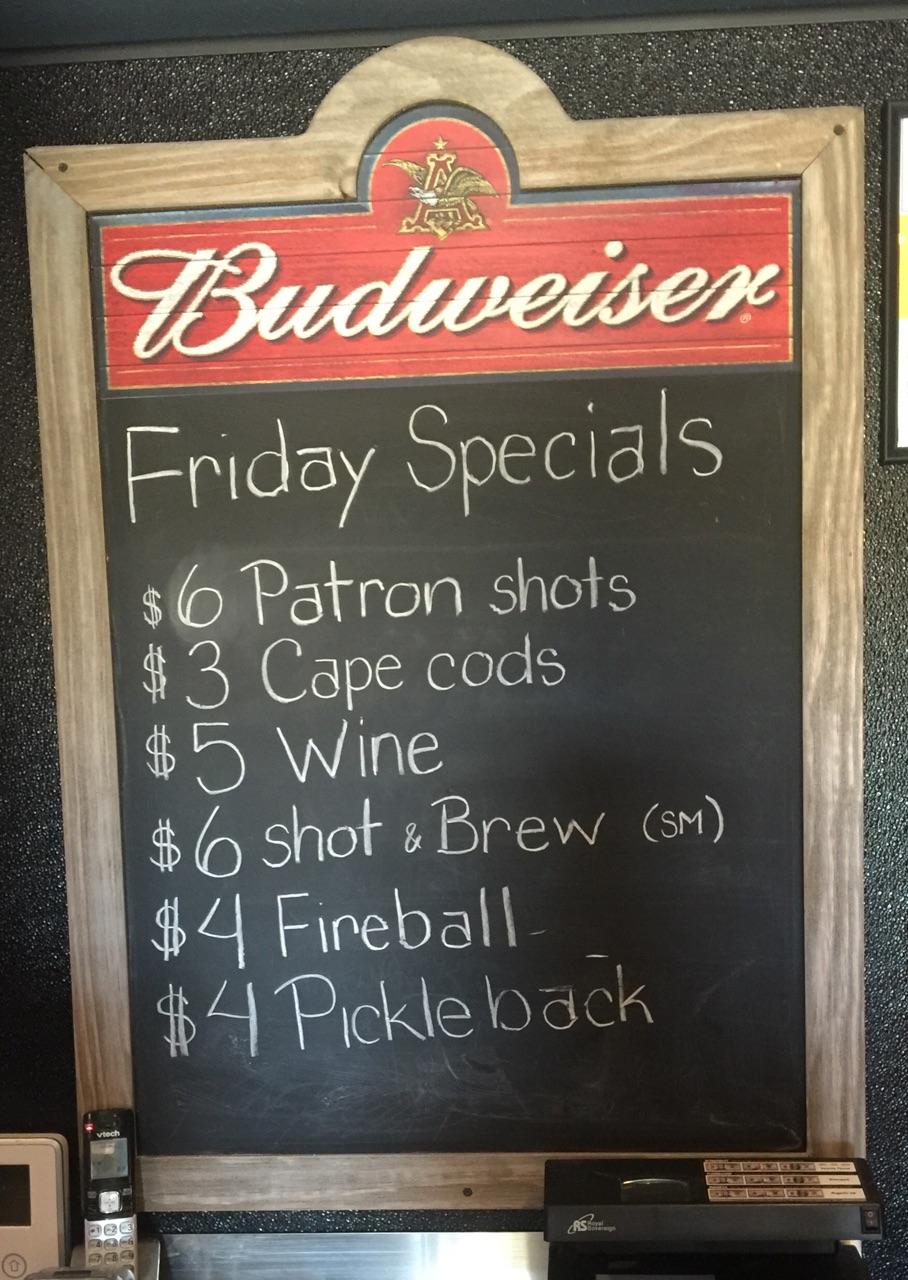 Budweiser
Friday Specials
$6 Patron shots
$3 Cape cods
$5 Wine
$6 shot & Brew (SM)
$4 Fireball
$4 Pickleback
vtech
RS Royal Sovereign